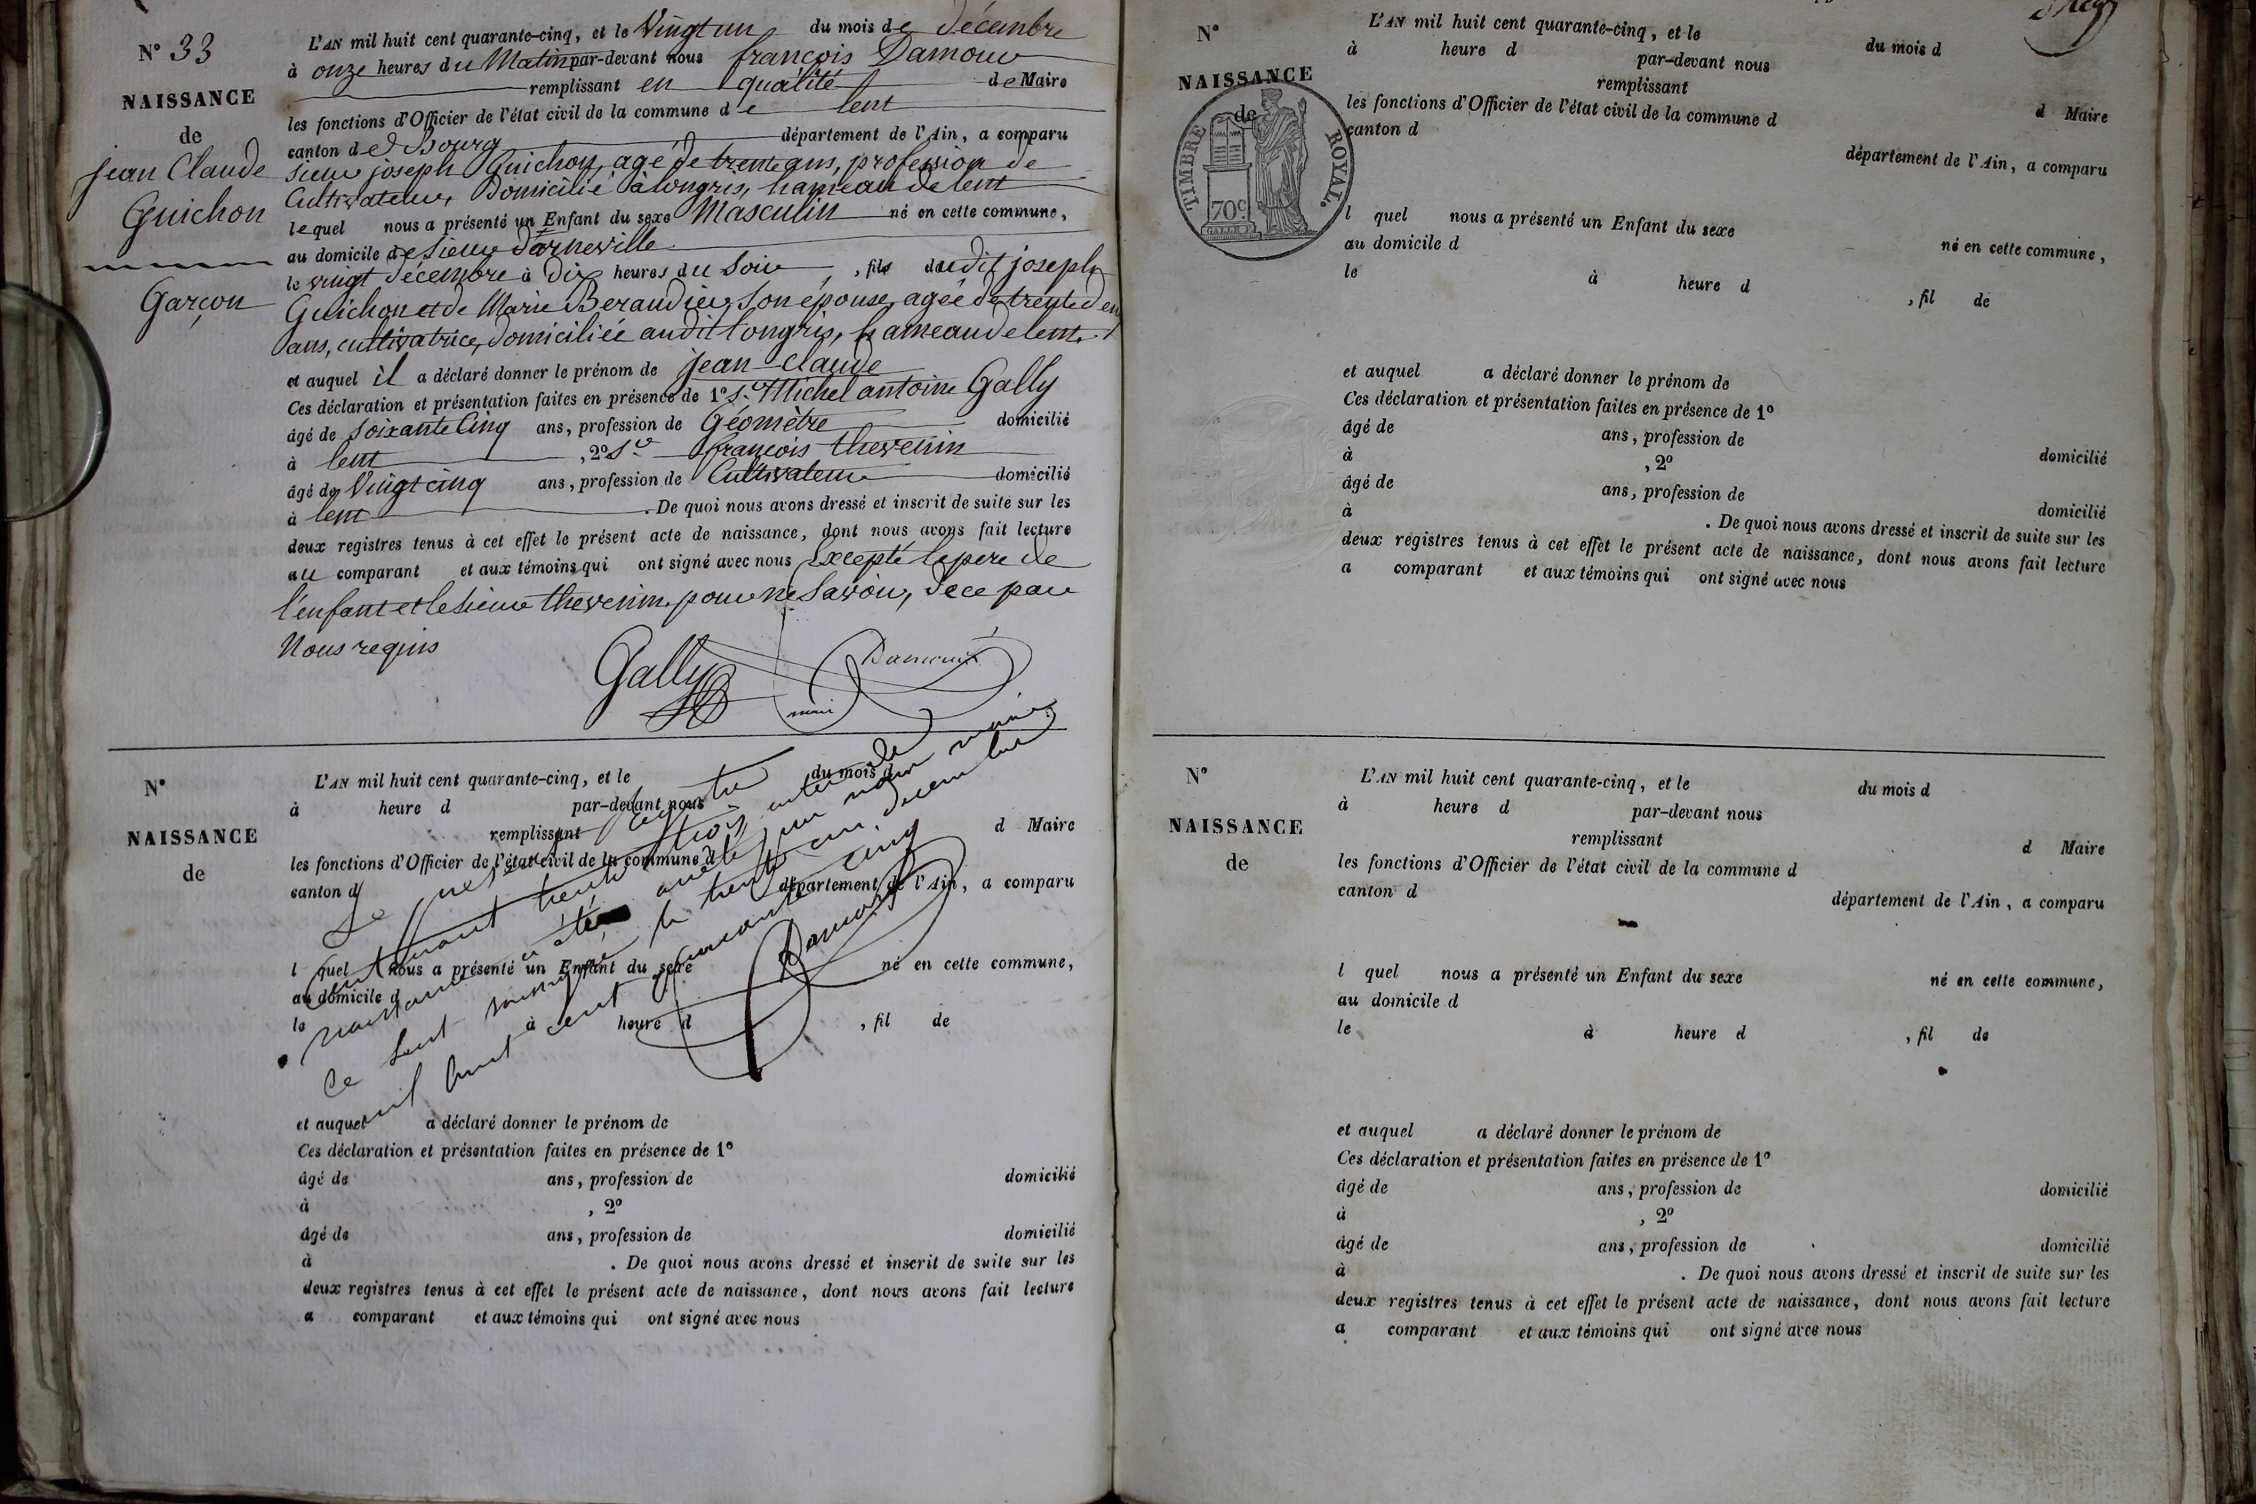 N° 33
NAISSANCE
de
jean Claude
Guichon
Garçon
L'AN mil huit cent quarante-cinq, et le Vingt un du mois de décembre
à onze heures du Matin par-devant nous françois Damour
remplissant en qualité de Maire
les fonctions d'Officier de l'état civil de la commune de lent
canton de Bourg département de l'Ain, a comparu
Sieur joseph Guichon, agé de trente ans, profession de
Cultivateur, Domicilié à longris, hameau de lent
lequel nous a présenté un Enfant du sexe Masculin né en cette commune,
au domicile de Sieur d'arneville
le vingt décembre à Dix heures du Soir, fils dudit joseph
Guichon et de Marie Beraudier Son épouse, agée de trente deux
ans, cultivatrice, domiciliée audit longris, hameau de lent.
et auquel il a déclaré donner le prénom de jean-claude
Ces déclaration et présentation faites en présence de 1° Sr Michel antoine Gally
âgé de Soixante Cinq ans, profession de Géomètre domicilié
à lent, 2° Sr françois thevenin
âgé de Vingt cinq ans, profession de Cultivateur domicilié
à lent. De quoi nous avons dressé et inscrit de suite sur les
deux registres tenus à cet effet le présent acte de naissance, dont nous avons fait lecture
au comparant et aux témoins qui ont signé avec nous Excepté le pere de
l'enfant et le Sieur thevenin, pour ne Savoir, de ce par
Nous requis
Gally Damour
mair
N°
NAISSANCE
de
L'AN mil huit cent quarante-cinq, et le du mois d
à heure d par-devant nous
remplissant d Maire
les fonctions d'Officier de l'état civil de la commune d
canton d département de l'Ain, a comparu
l quel nous a présenté un Enfant du sexe né en cette commune,
au domicile d
le à heure d , fil de
et auquel a déclaré donner le prénom de
Ces déclaration et présentation faites en présence de 1°
âgé de ans, profession de domicilié
à , 2°
âgé de ans, profession de domicilié
à . De quoi nous avons dressé et inscrit de suite sur les
deux registres tenus à cet effet le présent acte de naissance, dont nous avons fait lecture
a comparant et aux témoins qui ont signé avec nous
Le présent registre
contenant trente trois actes de
naissance a été arrêté par nous maire
de lent soussigné le trente un decembre
mil huit cent quarante cinq
Damour
N°
NAISSANCE
de
TIMBRE ROYAL.
70c
L'AN mil huit cent quarante-cinq, et le du mois d
à heure d par-devant nous
remplissant d Maire
les fonctions d'Officier de l'état civil de la commune d
canton d département de l'Ain, a comparu
l quel nous a présenté un Enfant du sexe né en cette commune,
au domicile d
le à heure d , fil de
et auquel a déclaré donner le prénom de
Ces déclaration et présentation faites en présence de 1°
âgé de ans, profession de domicilié
à , 2°
âgé de ans, profession de domicilié
à . De quoi nous avons dressé et inscrit de suite sur les
deux registres tenus à cet effet le présent acte de naissance, dont nous avons fait lecture
a comparant et aux témoins qui ont signé avec nous
N°
NAISSANCE
de
L'AN mil huit cent quarante-cinq, et le du mois d
à heure d par-devant nous
remplissant d Maire
les fonctions d'Officier de l'état civil de la commune d
canton d département de l'Ain, a comparu
l quel nous a présenté un Enfant du sexe né en cette commune,
au domicile d
le à heure d , fil de
et auquel a déclaré donner le prénom de
Ces déclaration et présentation faites en présence de 1°
âgé de ans, profession de domicilié
à , 2°
âgé de ans, profession de domicilié
à . De quoi nous avons dressé et inscrit de suite sur les
deux registres tenus à cet effet le présent acte de naissance, dont nous avons fait lecture
a comparant et aux témoins qui ont signé avec nous